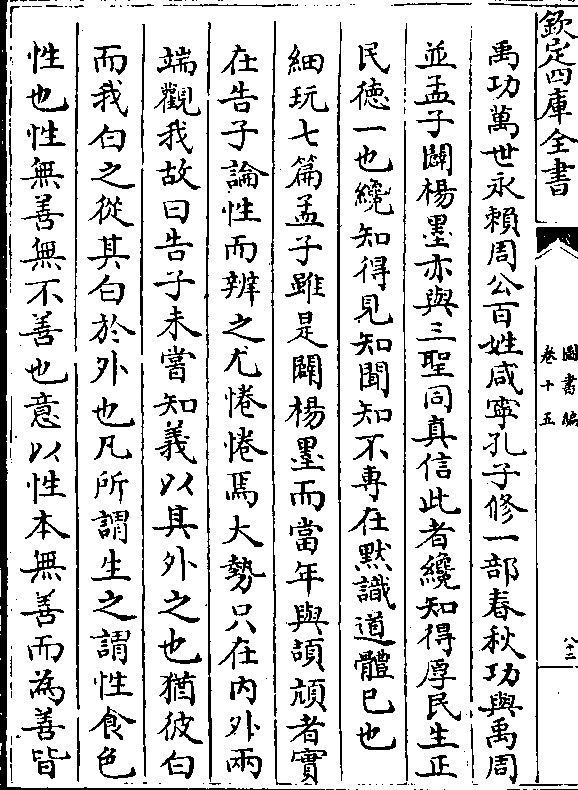 欽定四庫全書
圖書編
卷十五
八十二
禹功萬世永賴周公百姓咸寧孔子修一部春秋功與禹周
並孟子闢楊墨亦與三聖同真信此者纔知得厚民生正
民德一也纔知得見知聞知不專在默識道體已也
細玩七篇孟子雖是闢楊墨而當年與頡頏者實
在告子論性而辨之尤惓惓焉大勢只在内外兩
端觀我故曰告子未嘗知義以其外之也猶彼白
而我白之從其白於外也凡所謂生之謂性食色
性也性無善無不善也意以性本無善而為善皆